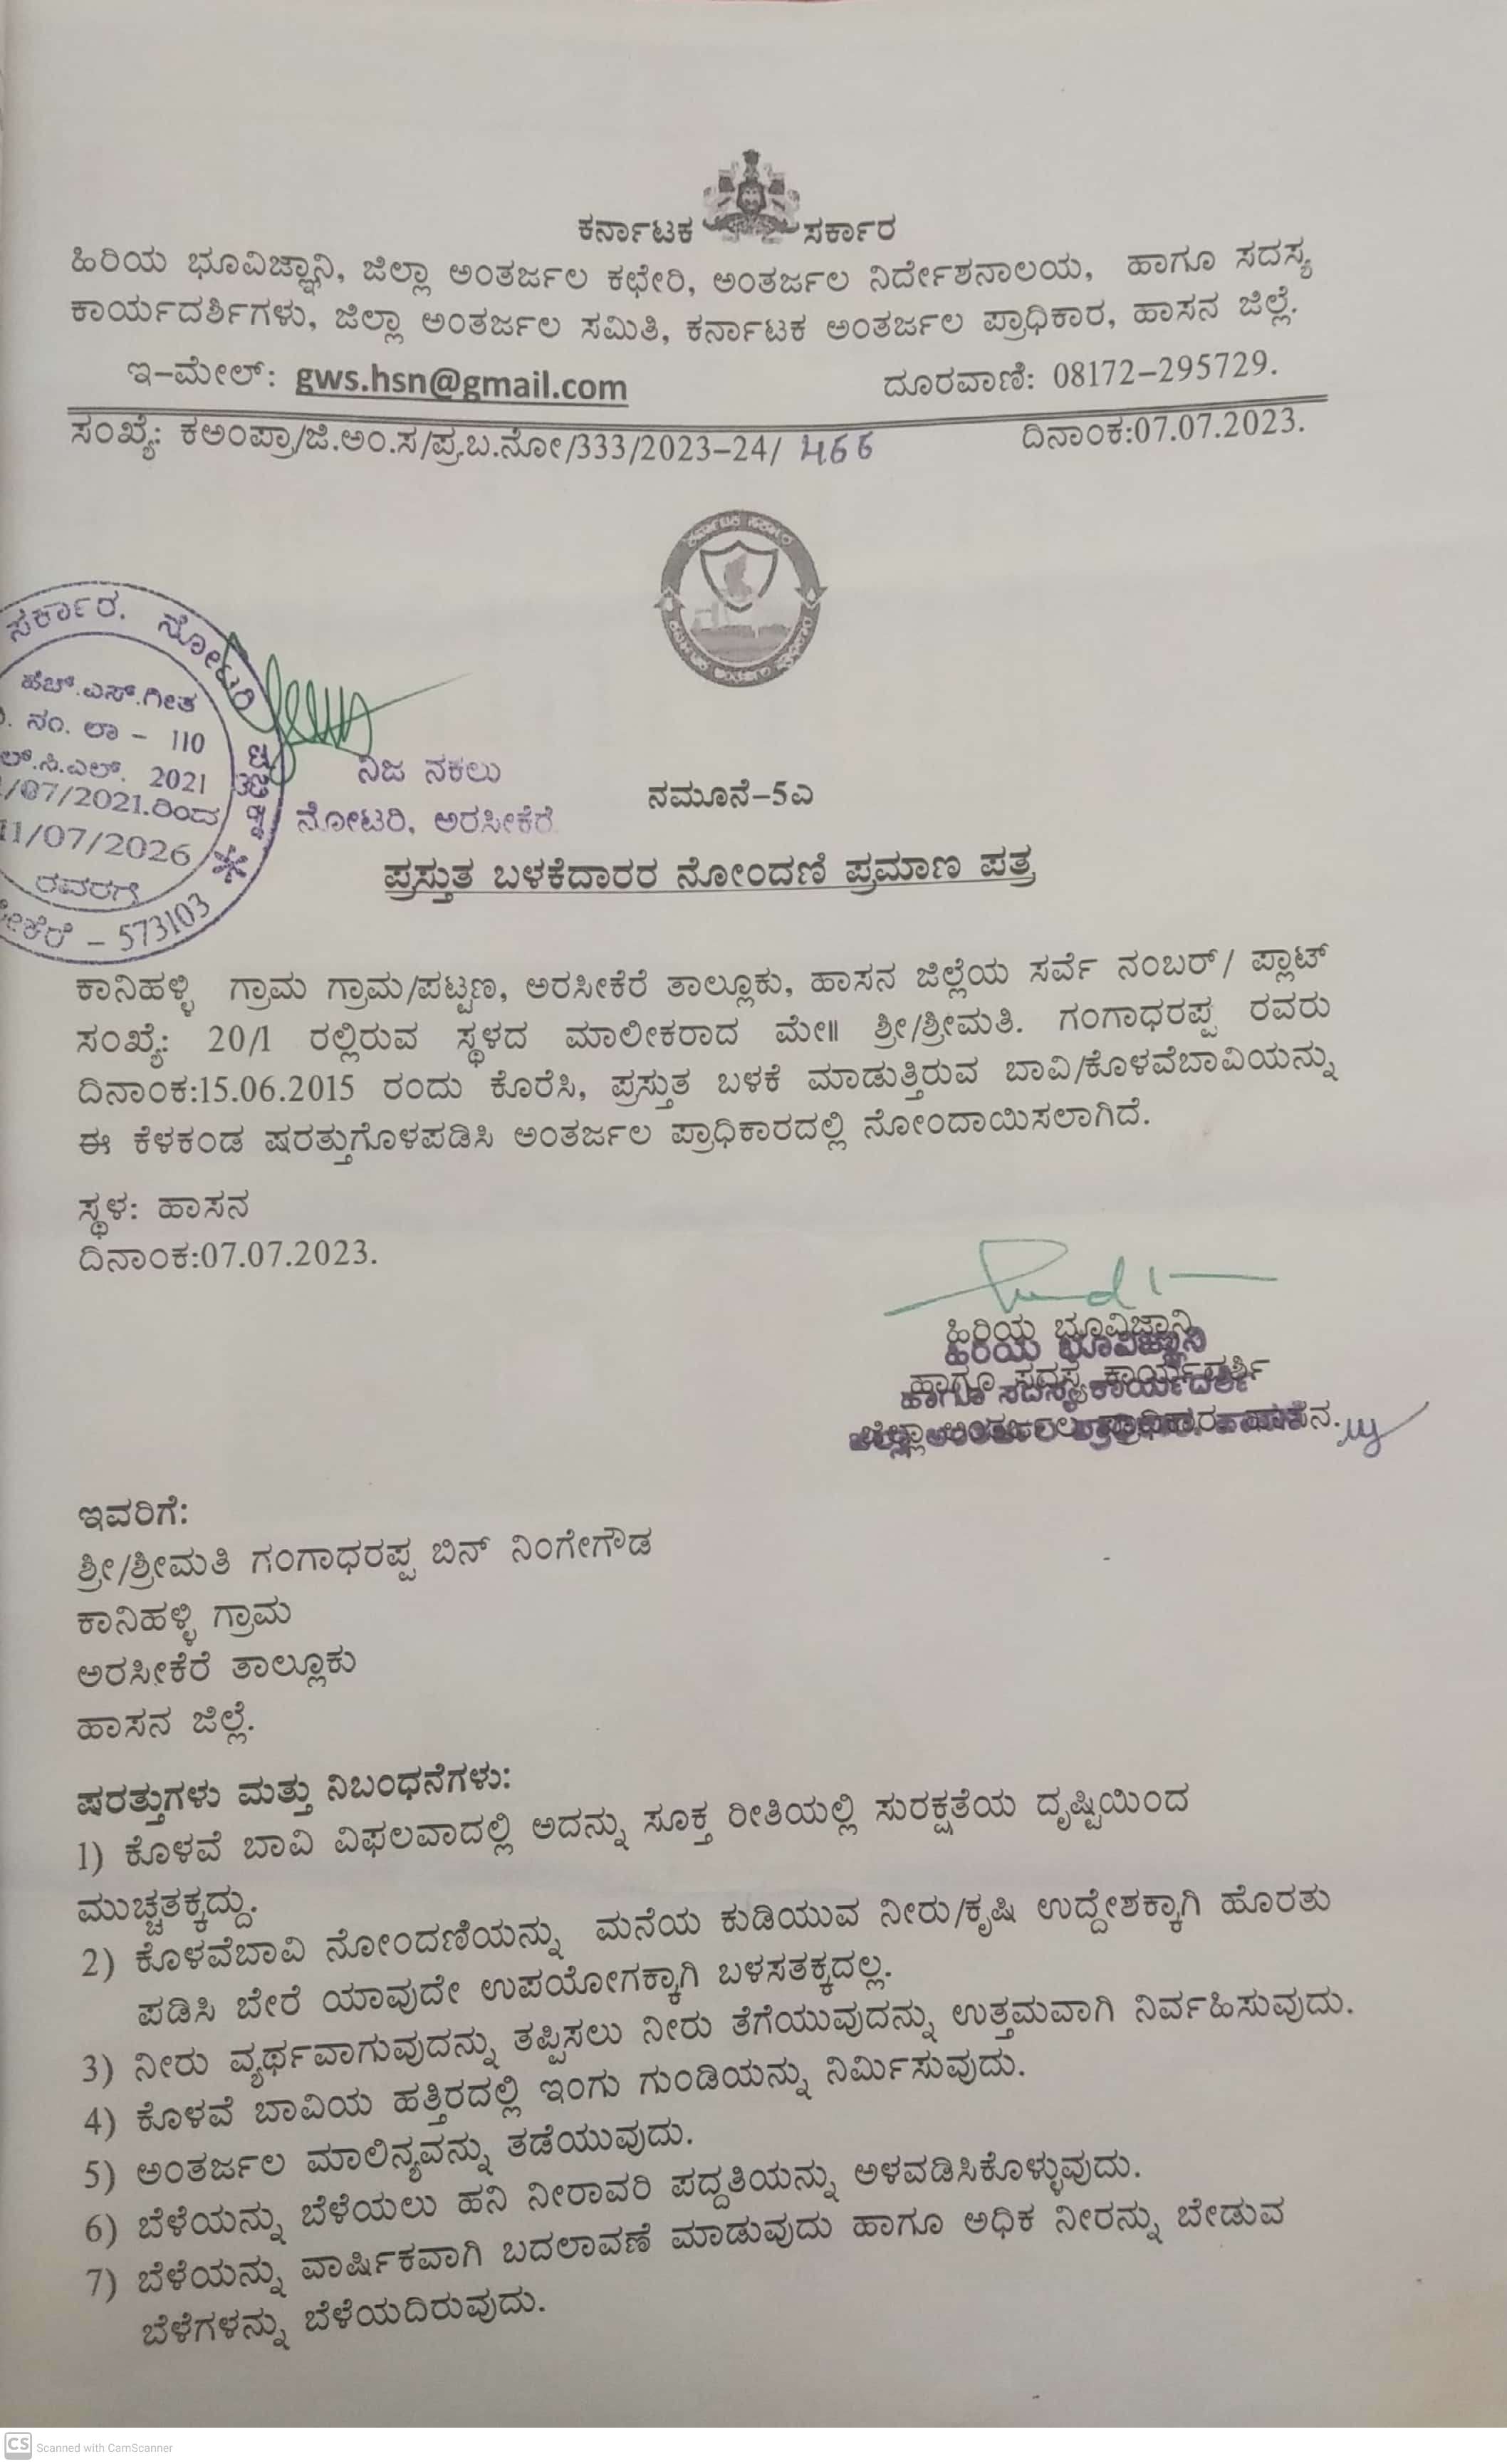 ಕರ್ನಾಟಕ ಸರ್ಕಾರ
ಹಿರಿಯ ಭೂವಿಜ್ಞಾನಿ, ಜಿಲ್ಲಾ ಅಂತರ್ಜಲ ಕಛೇರಿ, ಅಂತರ್ಜಲ ನಿರ್ದೇಶನಾಲಯ, ಹಾಗೂ ಸದಸ್ಯ
ಕಾರ್ಯದರ್ಶಿಗಳು, ಜಿಲ್ಲಾ ಅಂತರ್ಜಲ ಸಮಿತಿ, ಕರ್ನಾಟಕ ಅಂತರ್ಜಲ ಪ್ರಾಧಿಕಾರ, ಹಾಸನ ಜಿಲ್ಲೆ.
ಇ-ಮೇಲ್: gws.hsn@gmail.com ದೂರವಾಣಿ: 08172-295729.
ಸಂಖ್ಯೆ: ಕಅಂಪ್ರಾ/ಜಿ.ಅಂ.ಸ/ಪ್ರ.ಬ.ನೋ/333/2023-24/ 466 ದಿನಾಂಕ:07.07.2023.
ಸರ್ಕಾರ. ನೋಟರಿ
ಹೆಚ್.ಎಸ್.ಗೀತ
ನಂ. ಲಾ - 110
ಲ್.ಸಿ.ಎಲ್. 2021
/07/2021.ರಿಂದ
11/07/2026
ರವರಗೆ
ಕೆರೆ - 573103
ನಿಜ ನಕಲು
ನೋಟರಿ, ಅರಸೀಕೆರೆ
ನಮೂನೆ-5ಎ
ಪ್ರಸ್ತುತ ಬಳಕೆದಾರರ ನೋಂದಣಿ ಪ್ರಮಾಣ ಪತ್ರ
ಕಾನಿಹಳ್ಳಿ ಗ್ರಾಮ ಗ್ರಾಮ/ಪಟ್ಟಣ, ಅರಸೀಕೆರೆ ತಾಲ್ಲೂಕು, ಹಾಸನ ಜಿಲ್ಲೆಯ ಸರ್ವೆ ನಂಬರ್/ ಪ್ಲಾಟ್
ಸಂಖ್ಯೆ: 20/1 ರಲ್ಲಿರುವ ಸ್ಥಳದ ಮಾಲೀಕರಾದ ಮೇ॥ ಶ್ರೀ/ಶ್ರೀಮತಿ. ಗಂಗಾಧರಪ್ಪ ರವರು
ದಿನಾಂಕ:15.06.2015 ರಂದು ಕೊರೆಸಿ, ಪ್ರಸ್ತುತ ಬಳಕೆ ಮಾಡುತ್ತಿರುವ ಬಾವಿ/ಕೊಳವೆಬಾವಿಯನ್ನು
ಈ ಕೆಳಕಂಡ ಷರತ್ತುಗೊಳಪಡಿಸಿ ಅಂತರ್ಜಲ ಪ್ರಾಧಿಕಾರದಲ್ಲಿ ನೋಂದಾಯಿಸಲಾಗಿದೆ.
ಸ್ಥಳ: ಹಾಸನ
ದಿನಾಂಕ:07.07.2023.
ಹಿರಿಯ ಭೂವಿಜ್ಞಾನಿ
ಹಾಗೂ ಸದಸ್ಯ ಕಾರ್ಯದರ್ಶಿ
ಜಿಲ್ಲಾ ಅಂತರ್ಜಲ ಪ್ರಾಧಿಕಾರ ಹಾಸನ.
ಇವರಿಗೆ:
ಶ್ರೀ/ಶ್ರೀಮತಿ ಗಂಗಾಧರಪ್ಪ ಬಿನ್ ನಿಂಗೇಗೌಡ
ಕಾನಿಹಳ್ಳಿ ಗ್ರಾಮ
ಅರಸೀಕೆರೆ ತಾಲ್ಲೂಕು
ಹಾಸನ ಜಿಲ್ಲೆ.
ಷರತ್ತುಗಳು ಮತ್ತು ನಿಬಂಧನೆಗಳು:
1) ಕೊಳವೆ ಬಾವಿ ವಿಫಲವಾದಲ್ಲಿ ಅದನ್ನು ಸೂಕ್ತ ರೀತಿಯಲ್ಲಿ ಸುರಕ್ಷತೆಯ ದೃಷ್ಟಿಯಿಂದ
ಮುಚ್ಚತಕ್ಕದ್ದು.
2) ಕೊಳವೆಬಾವಿ ನೋಂದಣಿಯನ್ನು ಮನೆಯ ಕುಡಿಯುವ ನೀರು/ಕೃಷಿ ಉದ್ದೇಶಕ್ಕಾಗಿ ಹೊರತು
ಪಡಿಸಿ ಬೇರೆ ಯಾವುದೇ ಉಪಯೋಗಕ್ಕಾಗಿ ಬಳಸತಕ್ಕದಲ್ಲ.
3) ನೀರು ವ್ಯರ್ಥವಾಗುವುದನ್ನು ತಪ್ಪಿಸಲು ನೀರು ತೆಗೆಯುವುದನ್ನು ಉತ್ತಮವಾಗಿ ನಿರ್ವಹಿಸುವುದು.
4) ಕೊಳವೆ ಬಾವಿಯ ಹತ್ತಿರದಲ್ಲಿ ಇಂಗು ಗುಂಡಿಯನ್ನು ನಿರ್ಮಿಸುವುದು.
5) ಅಂತರ್ಜಲ ಮಾಲಿನ್ಯವನ್ನು ತಡೆಯುವುದು.
6) ಬೆಳೆಯನ್ನು ಬೆಳೆಯಲು ಹನಿ ನೀರಾವರಿ ಪದ್ದತಿಯನ್ನು ಅಳವಡಿಸಿಕೊಳ್ಳುವುದು.
7) ಬೆಳೆಯನ್ನು ವಾರ್ಷಿಕವಾಗಿ ಬದಲಾವಣೆ ಮಾಡುವುದು ಹಾಗೂ ಅಧಿಕ ನೀರನ್ನು ಬೇಡುವ
ಬೆಳೆಗಳನ್ನು ಬೆಳೆಯದಿರುವುದು.
CS Scanned with CamScanner